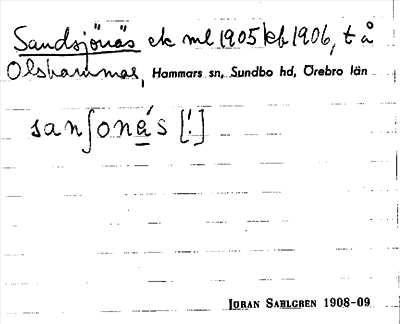 Sandsjönäs ek ml 1905 kb 1906, t å
Olshammar, Hammars sn, Sundbo hd, Örebro län
sanʃonås [!]
JÖRAN SAHLGREN 1908-09